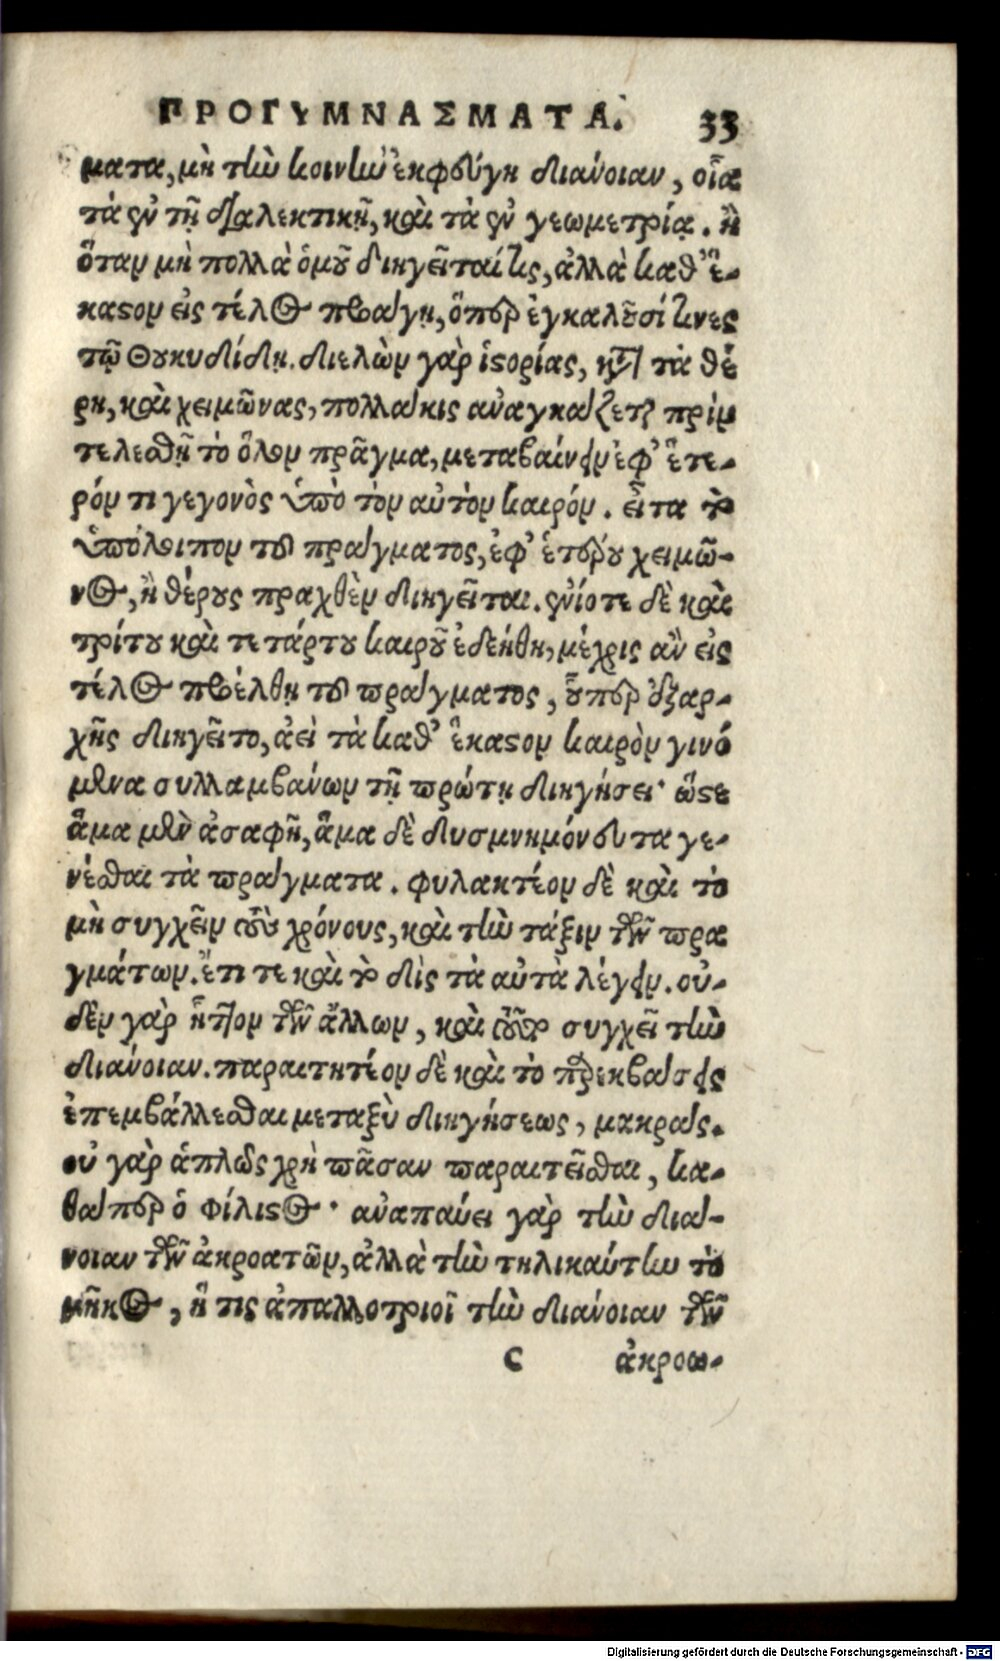 ΠΡΟΓΥΜΝΑΣΜΑΤΑ. 33
ματα, μὴ τὴν κοινὴν ἐκφεύγῃ διάνοιαν, οἷα
τὰ ἐν τῇ διαλεκτικῇ, καὶ τὰ ἐν γεωμετρίᾳ. ἢ
ὅταν μὴ πολλὰ ὁμοῦ διηγεῖταί τις, ἀλλὰ καθ' ἕ-
καστον εἰς τέλος προάγῃ, ὅπερ ἐγκαλοῦσί τινες
τῷ Θουκυδίδῃ. διελὼν γὰρ ἱστορίας, κατὰ τὰ θέ
ρη, καὶ χειμῶνας, πολλάκις ἀναγκάζεται πρὶν
τελεσθῇ τὸ ὅλον πρᾶγμα, μεταβαίνειν ἐφ' ἕτε-
ρόν τι γεγονὸς ὑπὸ τὸν αὐτὸν καιρόν. εἶτα τὸ
ὑπόλοιπον τοῦ πράγματος, ἐφ' ἑτέρου χειμῶ-
νος, ἢ θέρους πραχθὲν διηγεῖται. ἐνίοτε δὲ καὶ
τρίτου καὶ τετάρτου καιροῦ ἐδεήθη, μέχρις ἂν εἰς
τέλος προέλθῃ τοῦ πράγματος, οὗπερ ἐξαρ-
χῆς διηγεῖτο, ἀεὶ τὰ καθ' ἕκαστον καιρὸν γινό
μενα συλλαμβάνων τῇ πρώτῃ διηγήσει· ὥστε
ἅμα μὲν ἀσαφῆ, ἅμα δὲ δυσμνημόνευτα γε-
νέσθαι τὰ πράγματα. φυλακτέον δὲ καὶ τὸ
μὴ συγχεῖν τοὺς χρόνους, καὶ τὴν τάξιν τῶν πρα
γμάτων. ἔτι τε καὶ τὸ δὶς τὰ αὐτὰ λέγειν. οὐ-
δὲν γὰρ ἧττον τῶν ἄλλων, καὶ τοῦτο συγχεῖ τὴν
διάνοιαν. παραιτητέον δὲ καὶ τὸ παρεκβάσεις
ἐπεμβάλλεσθαι μεταξὺ διηγήσεως, μακράς.
οὐ γὰρ ἁπλῶς χρὴ πᾶσαν παραιτεῖσθαι, κα-
θάπερ ὁ Φίλιστος· ἀναπαύει γὰρ τὴν διά-
νοιαν τῶν ἀκροατῶν, ἀλλὰ τὴν τηλικαύτην τὸ
μῆκος, ἥ τις ἀπαλλοτριοῖ τὴν διάνοιαν τῶν
c ἀκροω-
Digitalisierung gefördert durch die Deutsche Forschungsgemeinschaft - DFG